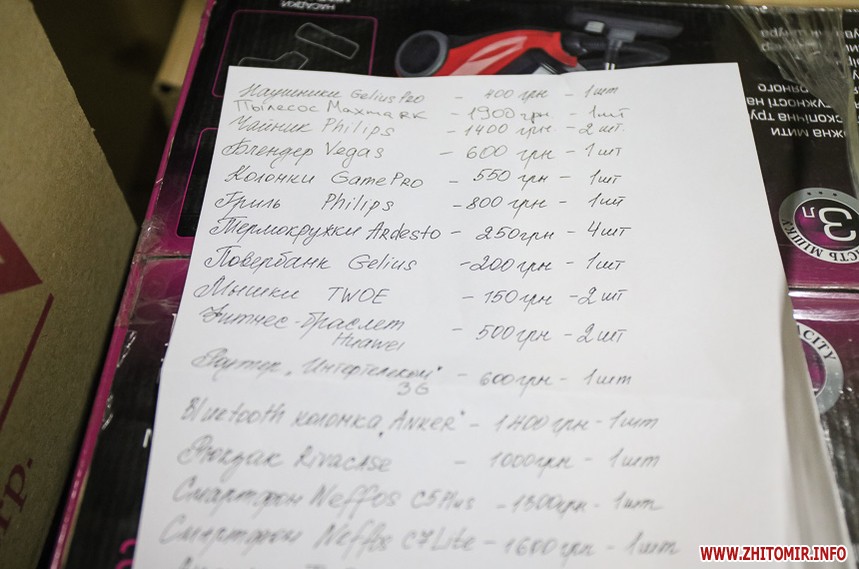 НАСАДКИ
Наушники Gelius Pro - 400 грн - 1 шт
Пылесос Maxmark - 1900 грн - 1 шт
Чайник Philips - 1400 грн - 2 шт.
Блендер Vegas - 600 грн - 1 шт
Колонки GamePro - 550 грн - 1 шт
Гриль Philips - 800 грн - 1 шт
Термокружки Ardesto - 250 грн - 4 шт
Повербанк Gelius - 200 грн - 1 шт
Мышки TWOE - 150 грн - 2 шт
Фитнес-браслет
Huawei - 500 грн - 2 шт
Раутер "Интертелеком"
3G - 600 грн - 1 шт
Bluetooth колонка "ANKER" - 1400 грн - 1 шт
Рюкзак Rivacase - 1000 грн - 1 шт
Смартфон Neffos C5 Plus - 1300 грн - 1 шт
Смартфон Neffos C7 Lite - 1600 грн - 1 шт
3л
ІСТЬ МІШКУ
CITY
жна мити
скопічна тру
ужності на
гр.
WWW.ZHITOMIR.INFO